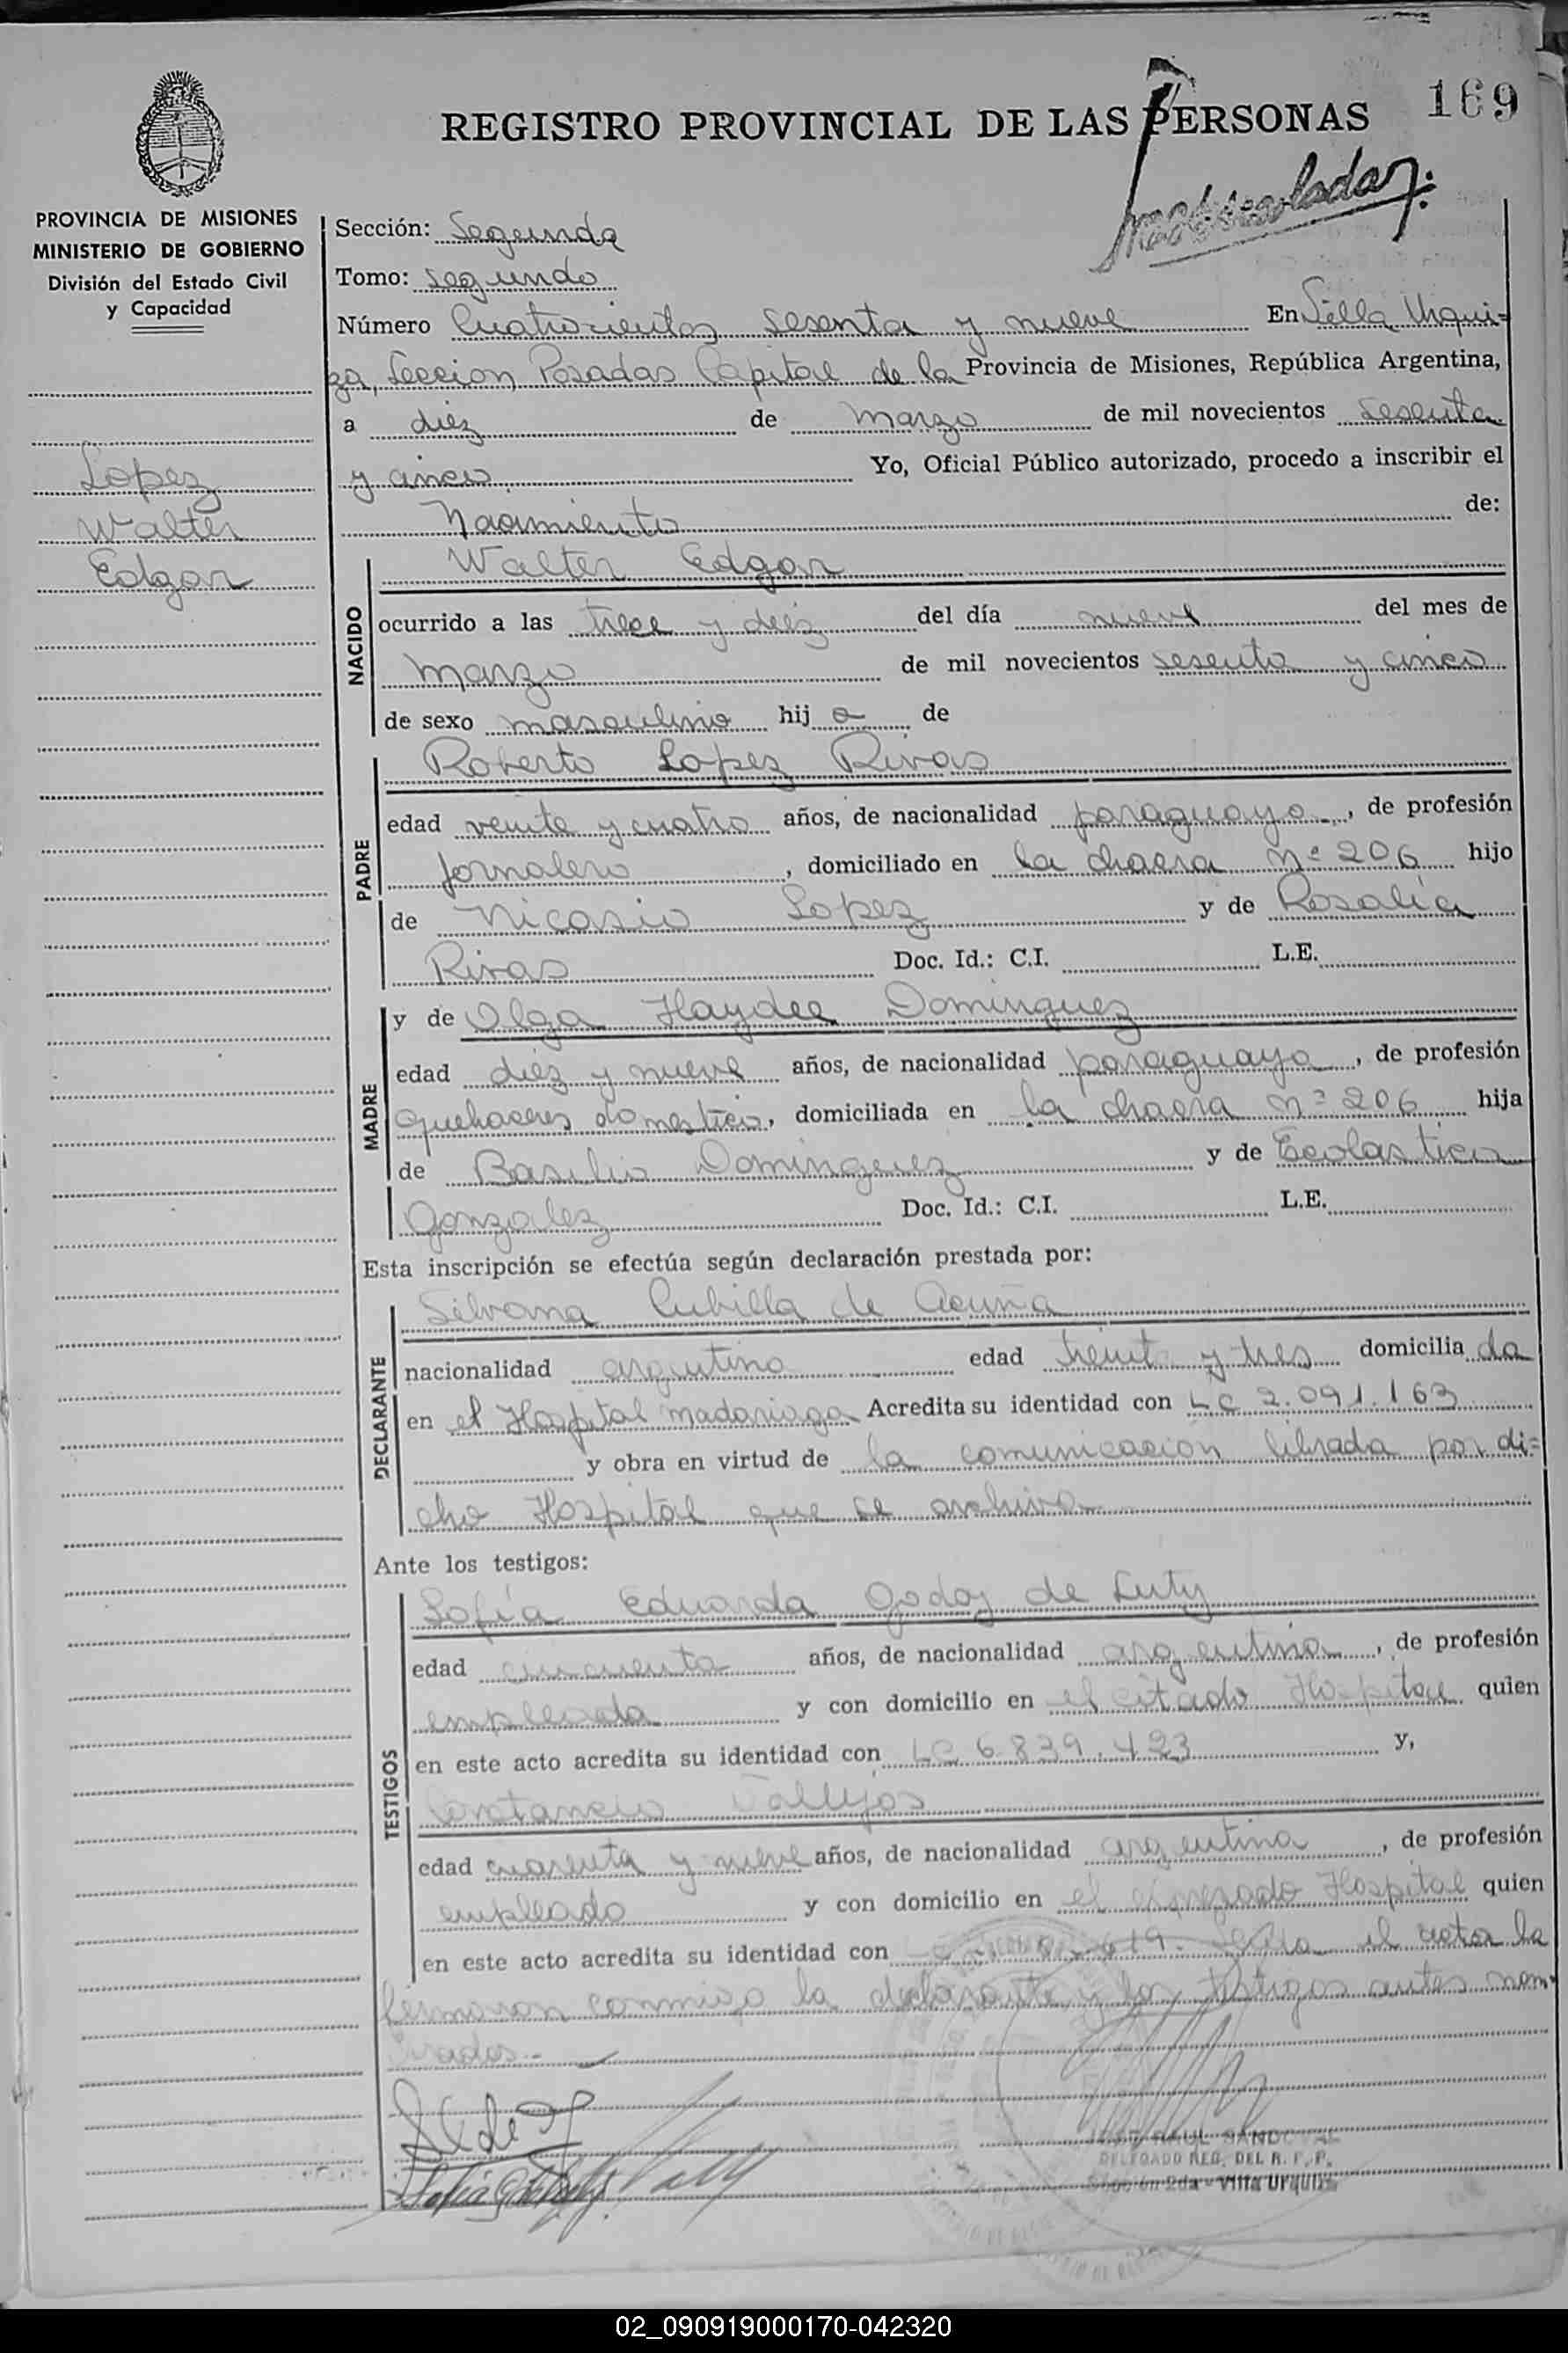 169
REGISTRO PROVINCIAL DE LAS PERSONAS
PROVINCIA DE MISIONES
MINISTERIO DE GOBIERNO
División del Estado Civil
y Capacidad
Lopez
Walter
Edgar
Sección: Segunda
Tomo: segundo
Número Cuatrocientos sesenta y nueve En Villa Urqui=
za, Seccion Posadas Capital de la Provincia de Misiones, República Argentina,
a diez de marzo de mil novecientos sesenta
y cinco. Yo, Oficial Público autorizado, procedo a inscribir el
Nacimiento de:
NACIDO
Walter Edgar
ocurrido a las trece y diez del día nueve del mes de
marzo de mil novecientos sesenta y cinco
de sexo masculino hij o de
PADRE
Roberto Lopez Rivas
edad veinte y cuatro años, de nacionalidad paraguaya, de profesión
jornalero, domiciliado en la chacra nº 206 hijo
de Nicasio Lopez y de Rosalia
Rivas Doc. Id.: C.I. L.E.
MADRE
y de Olga Haydee Dominguez
edad diez y nueve años, de nacionalidad paraguaya, de profesión
quehaceres domestico, domiciliada en la chacra nº 206 hija
de Basilio Dominguez y de Escolastica
Gonzalez Doc. Id.: C.I. L.E.
Esta inscripción se efectúa según declaración prestada por:
DECLARANTE
Silvana Cubilla de Acuña
nacionalidad argentina edad treinta y tres domicilia da
en el Hospital Madariaga Acredita su identidad con LC 2.091.163
y obra en virtud de la comunicacion librada por di=
cho Hospital que se archiva
Ante los testigos:
TESTIGOS
Sofía Eduarda Godoy de Luty
edad cincuenta años, de nacionalidad argentina, de profesión
empleada y con domicilio en el citado Hospital quien
en este acto acredita su identidad con LC 6.839.423 y,
Constancio Vallejos
edad cuarenta y nueve años, de nacionalidad argentina, de profesión
empleado y con domicilio en el expresado Hospital quien
en este acto acredita su identidad con el acta la
firmaron conmigo la declarante y los testigos antes nom=
brados.-
RAUL SANDOVAL
DELEGADO REG. DEL R. P. P.
Sección 2da - Villa Urquiza
02_090919000170-042320